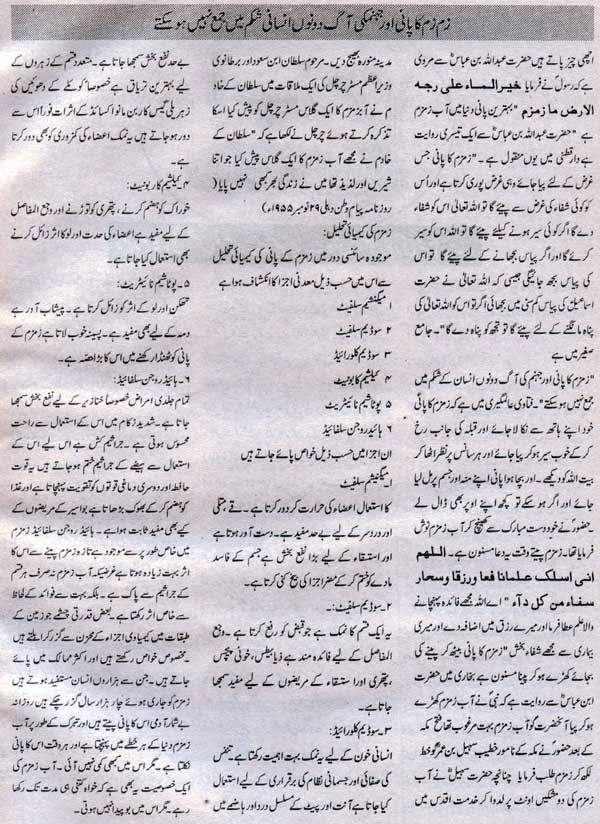 زم زم کا پانی اور جہنمکی آگ دونوں انسانی شکم میں جمع نہیں ہو سکتے
اچھی چیز پاتے ہیں حضرت عبداللہ بن عباسؓ سے مروی
ہے کہ رسولؐ نے فرمایا خیر الماء علی رجہ
الارض ما زمزم "بہترین پانی دنیا میں آب زمزم
ہے" حضرت عبداللہ بن عباسؓ سے ایک تیسری روایت
ہے دار قطنی میں یوں منقول ہے۔ "زمزم کا پانی جس
غرض کے لئے پیا جائے وہی غرض پوری کرتا ہے اور اُس
کو کوئی شفاء کی غرض سے پیئے گا تو اللہ تعالیٰ اس کو شفاء
دے گا اگر کوئی سیر ہونے کیلئے پیئے گا تو اللہ اس کو سیر
کرئے گا اور اگر پیاس بجھانے کے لئے پیئے گا تو اس
کی پیاس بجھ جائیگی جیسی کہ اللہ تعالیٰ نے حضرت
اسماعیلؑ کی پیاس کم سنی میں بجھائی اگر تو اس کو اللہ تعالیٰ کی
پناہ مانگنے کے لئے پیئے گا تو تجھ کو پناہ دے گا"۔ جامع
صغیر میں ہے
"زمزم کا پانی اور جہنم کی آگ دونوں انسان کے شکم میں
جمع نہیں ہو سکتے"۔ فتاوی عالمگیری میں ہے کہ زمزم کا پانی
خود اپنے ہاتھ سے نکالا جائے اور قبلہ کی جانب رخ
کر کے خوب سیر ہو کر پیا جائے اور ہر سانس پر نظر اٹھا کر
بیت اللہ کو دیکھے۔ اور بچا ہوا پانی اپنے منہ اور جسم پر مل لیا
جائے اور اگر ہو سکے تو کچھ اپنے اوپر بھی ڈال لے
حضورؐ نے خود دست مبارک سے کھینچ کر آب زمزم نوش
فرمایا تھا۔ زمزم پیتے وقت یہ دعا مسنون ہے۔ اللھم
انی اسلک علما نا فعا ورزقا وسحار
سفاء من کل دآء " اے اللہ مجھے فائدہ پہنچانے
والا علم عطا فرما اور میرے رزق میں اضافہ دے اور میری
بیماری سے مجھے شفاء بخش "زمزم کا پانی بیٹھ کر پینے کی
بجائے کھڑے ہو کر پینا مسنون ہے بخاری میں حضرت
ابن عباسؓ سے روایت ہے کہ نبیؐ نے آب زمزم کھڑے
ہو کر پیا آنحضرتؐ کو آب زمزم بہت مرغوب تھا فتح مکہ
کے بعد حضورؐ نے مکہ کے نامور خطیب سہیل بن عمرؓ کو خط
لکھ کر زمزم طلب فرمایا چنانچہ حضرت سہیلؓ نے آب
زمزم کی دو مشکیں اونٹ پر لدوا کر خدمت اقدس میں
مدینہ منورہ بھیج دیں۔ مرحوم سلطان ابن سعود اور برطانوی
وزیراعظم مسٹر چرچل کی ایک ملاقات میں سلطان کے خادم
نے آب زمزم کا ایک گلاس مسٹر چرچل کو پیش کیا اسکا
تذکرہ کرتے ہوئے چرچل نے لکھا ہے کہ "سلطان کے
خادم نے مجھے آب زمزم کا ایک گلاس پیش کیا جو اتنا
شیریں اور لذیذ تھا میں نے زندگی بھر کبھی نہیں پایا (
روزنامہ پیام وطن دہلی ۲۹ نومبر ۱۹۵۵ء)
زمزم کی کیمیائی تحلیل:
موجودہ سائنسی دور میں زمزم کے پانی کی کیمیائی تحلیل
سے اس میں حسب ذیل معدنی اجزا کا انکشاف ہوا ہے
۱ میگنیشم سلفیٹ
۲ سوڈیم سلفیٹ
۳ سوڈیم کلورائیڈ
۴ کیلشیم کابونیٹ
۵ پوٹاشیم نائٹریٹ
۶ ہائیڈروجن سلفائیڈ
ان اجزا میں حسب ذیل خواص پائے جاتے ہیں
۱۔ میگنیشیم سلفیٹ
کا استعمال اعضاء کی حرارت کو دور کرتا ہے۔ قے متلی
اور درد سر کے لیے بے حد مفید ہے۔ دست آور ہوتا ہے
اور استسقاء کے لیے بڑا نفع بخش ہے جسم کے فاسد
مادے کو ختم کر کے مضر اجزا کی بیخ کنی کرتا ہے۔
۲۔ سوڈیم سلفیٹ:۔
یہ ایک قسم کا نمک ہے جو قبض کو رفع کرتا ہے۔ وجع
المفاصل کے لیے فائدہ مند ہے ذیابیطس، خونی پیچش
، پتھری اور استسقاء کے مریضوں کے لیے مفید سمجھا
جاتا ہے۔
۳۔ سوڈیم کلورائیڈ:
انسانی خون کے لیے یہ نمک بہت اہمیت رکھتا ہے۔ تنفس
کی صفائی اور جسمانی نظام کی برقراری کے لیے استعمال
کیا جاتا ہے آنت اور پیٹ کے مسلسل درد اور ہاضمے میں
بے حد نفع بخش سمجھا جاتا ہے۔ متعدد قسم کے زہروں کے
لیے بہترین تریاق ہے خصوصاً کوئلے کے دھوئیں کی
زہریلی گیس کاربن مانو آکسائڈ کے اثرات فوراً اس سے
دور ہو جاتے ہیں یہ نمک اعضاء کی کمزوری کو بھی دور کرتا
ہے۔
۴ کیلشیم کاربونیٹ:
خوراک کو ہضم کرنے، پتھری کو توڑنے اور وجع المفاصل
کے لیے مفید ہے اعضاء کی حدت اور لو کا اثر زائل کرنے
بھی استعمال کیا جاتا ہے۔
۵۔ پوٹاشیم نائٹریٹ:
تھکن اور لو کے اثر کو زائل کرتا ہے۔ پیشاب آور ہے
دمہ کے لیے بھی مفید ہے۔ پسینہ خوب لاتا ہے زمزم کے
پانی کو ٹھنڈا رکھنے میں اس کا بڑا حصہ ہے۔
۶۔ ہائیڈروجن سلفائیڈ:
تمام جلدی امراض خصوصاً خنازیر کے لیے نفع بخش سمجھا
جاتا ہے۔ شدید زکام میں اس کے استعمال سے راحت
محسوس ہوتی ہے۔ جراثیم کش ہے اس لیے اس کے
استعمال سے ہیضے کے جراثیم ختم ہو جاتے ہیں یہ قوت
حافظہ اور دوسری دماغی قوتوں کو تقویت پہنچاتا ہے اور غذا
کو ہضم کر کے بھوک بڑھاتا ہے بواسیر کے مریضوں کے
لیے بھی مفید ثابت ہوا ہے۔ ہائیڈروجن سلفائیڈ زمزم
میں خاص طور پر سے موجود ہے تازہ زمزم پینے سے اس کا
اثر بہت زیادہ ہوتا ہے غرضیکہ آب زمزم نہ صرف ہر قسم
کے جراثیم سے پاک ہے۔ بلکہ بہت سے فوائد کے لحاظ
سے خاص اثر رکھتا ہے۔ بعض قدرتی چشمے جو زمین کے
طبقات میں کیمیاوی اجزاء کے مخزن سے گزر کر ابلتے ہیں
۔ مخصوص خواص رکھتے ہیں اور اکثر ممالک میں پائے
جاتے ہیں۔ جن سے ہزاروں انسان مستفید ہوتے ہیں
زمزم کو جاری ہوئے چار ہزار سال گزر چکے ہیں روزانہ
بے شمار آدمی اس کا پانی پیتے ہیں اور تبرک کے طور پر آب
زمزم دنیا کے ہر خطے میں پہنچتا ہے اور ہر وقت اس کا پانی
نکلتا ہے۔ مگر اس میں کبھی کمی نہیں آئی۔ آب زمزم کی
ایک خصوصیت یہ بھی ہے کہ خواہ کتنی ہی مدت تک رکھا
رہے۔ مگر اس میں بو پیدا نہیں ہوتی۔